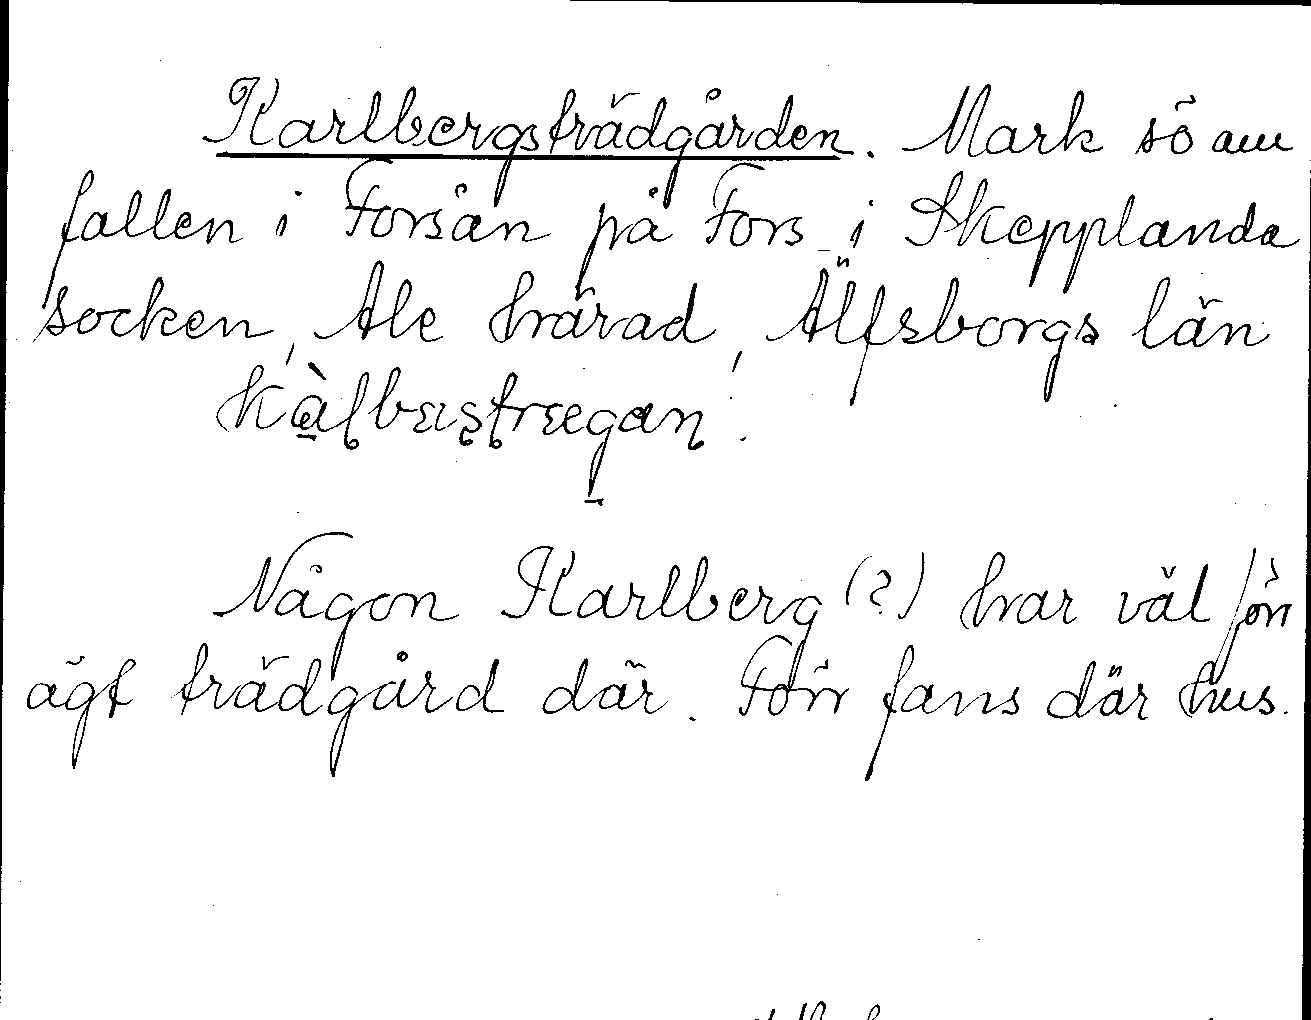 Karlbergsträdgården. Mark sö om
fallen i Forsån på Fors i Skepplanda
socken, Ale härad, Älfsborgs län
Någon Karlberg (?) har väl förr
ägt trädgård där. Förr fans där hus.